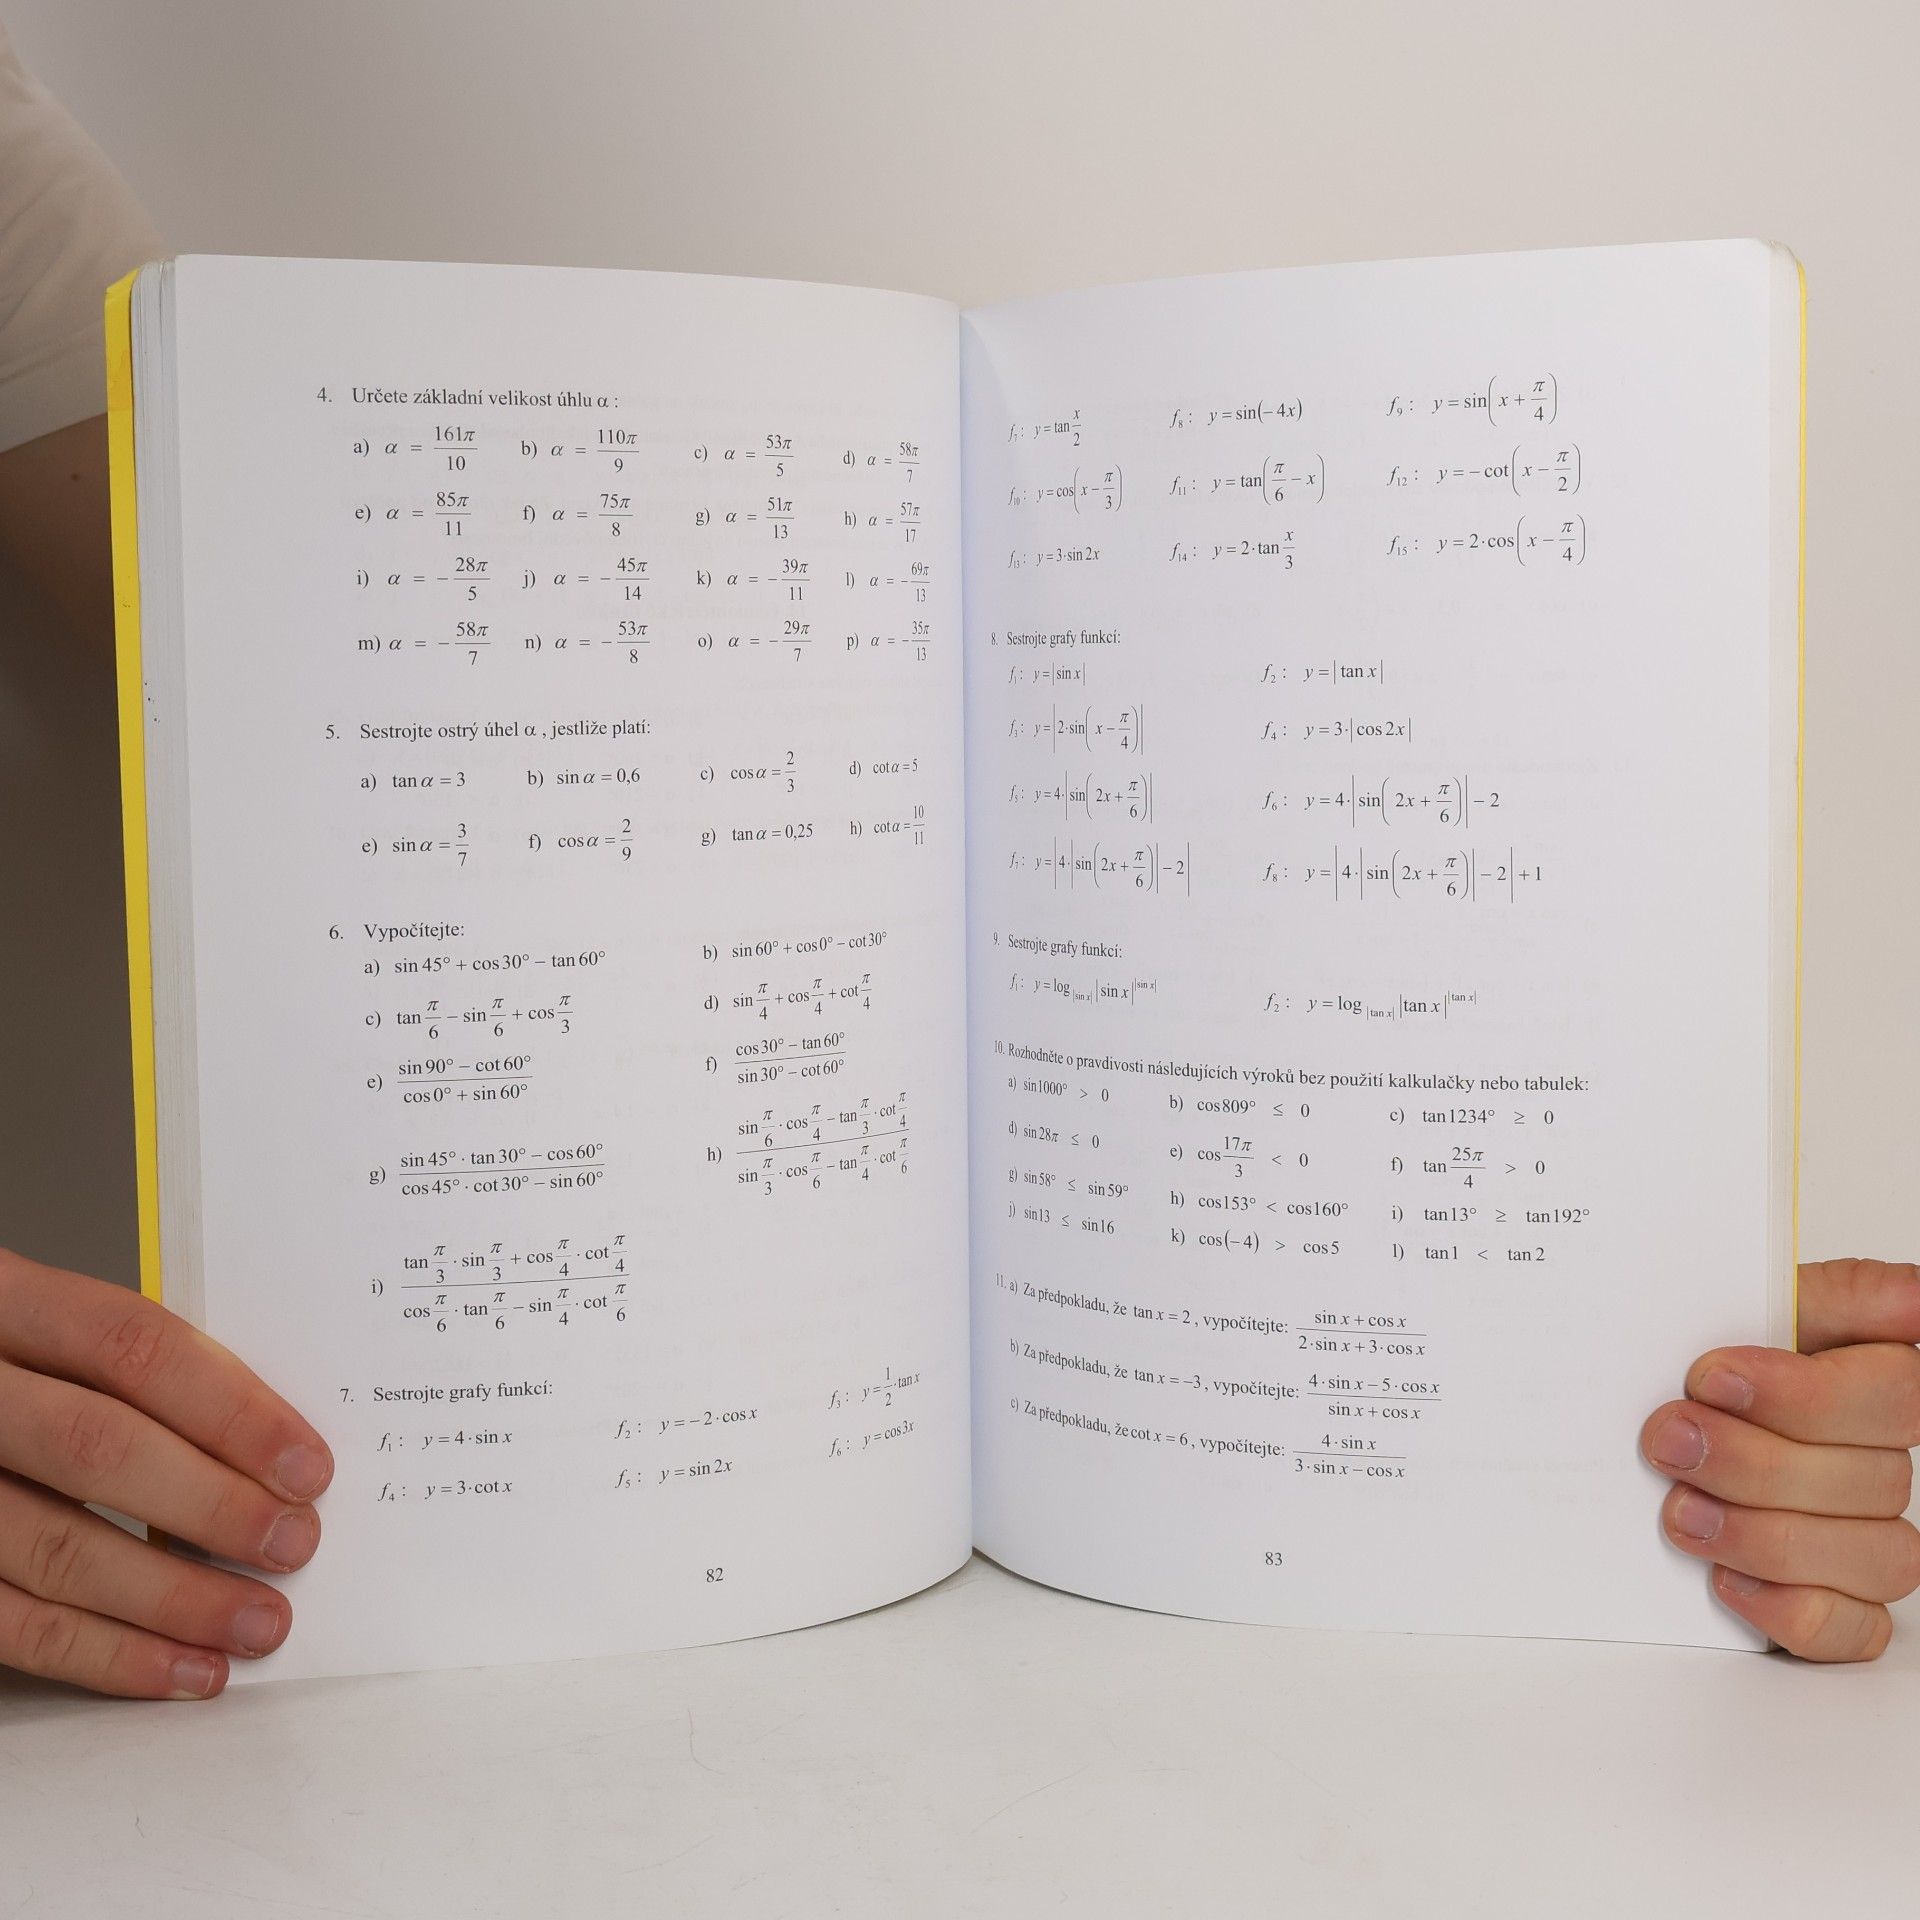 4. Určete základní velikost úhlu α :
a) α = 161π/10 b) α = 110π/9 c) α = 53π/5 d) α = 58π/7
e) α = 85π/11 f) α = 75π/8 g) α = 51π/13 h) α = 57π/17
i) α = −28π/5 j) α = −45π/14 k) α = −39π/11 l) α = −69π/13
m) α = −58π/7 n) α = −53π/8 o) α = −29π/7 p) α = −35π/13
5. Sestrojte ostrý úhel α , jestliže platí:
a) tan α = 3 b) sin α = 0,6 c) cos α = 2/3 d) cot α = 5
e) sin α = 3/7 f) cos α = 2/9 g) tan α = 0,25 h) cot α = 10/11
6. Vypočítejte:
a) sin 45° + cos 30° − tan 60° b) sin 60° + cos 0° − cot 30°
c) tan π/6 − sin π/6 + cos π/3 d) sin π/4 + cos π/4 + cot π/4
e) (sin 90° − cot 60°)/(cos 0° + sin 60°) f) (cos 30° − tan 60°)/(sin 30° − cot 60°)
g) (sin 45° · tan 30° − cos 60°)/(cos 45° · cot 30° − sin 60°) h) (sin π/6 · cos π/4 − tan π/3 · cot π/4)/(sin π/3 · cos π/6 − tan π/4 · cot π/6)
i) (tan π/3 · sin π/3 + cos π/4 · cot π/4)/(cos π/6 · tan π/6 − sin π/4 · cot π/6)
7. Sestrojte grafy funkcí:
f₁ : y = 4 · sin x f₂ : y = − 2 · cos x f₃ : y = 1/2 · tan x
f₄ : y = 3 · cot x f₅ : y = sin 2x f₆ : y = cos 3x
82
f₇ : y = tan x/2 f₈ : y = sin(− 4x) f₉ : y = sin(x + π/4)
f₁₀ : y = cos(x − π/3) f₁₁ : y = tan(π/6 − x) f₁₂ : y = − cot(x − π/2)
f₁₃ : y = 3 · sin 2x f₁₄ : y = 2 · tan x/3 f₁₅ : y = 2 · cos(x − π/4)
8. Sestrojte grafy funkcí:
f₁ : y = |sin x| f₂ : y = |tan x|
f₃ : y = |2 · sin(x − π/4)| f₄ : y = 3 · |cos 2x|
f₅ : y = 4 · |sin(2x + π/6)| f₆ : y = 4 · |sin(2x + π/6)| − 2
f₇ : y = |4 · |sin(2x + π/6)| − 2| f₈ : y = |4 · |sin(2x + π/6)| − 2| + 1
9. Sestrojte grafy funkcí:
f₁ : y = log_|sin x| |sin x|^|sin x| f₂ : y = log_|tan x| |tan x|^|tan x|
10. Rozhodněte o pravdivosti následujících výroků bez použití kalkulačky nebo tabulek:
a) sin 1000° > 0 b) cos 809° ≤ 0 c) tan 1234° ≥ 0
d) sin 28π ≤ 0 e) cos 17π/3 < 0 f) tan 25π/4 > 0
g) sin 58° ≤ sin 59° h) cos 153° < cos 160° i) tan 13° ≥ tan 192°
j) sin 13 ≤ sin 16 k) cos(−4) > cos 5 l) tan 1 < tan 2
11. a) Za předpokladu, že tan x = 2 , vypočítejte: (sin x + cos x)/(2 · sin x + 3 · cos x)
b) Za předpokladu, že tan x = −3 , vypočítejte: (4 · sin x − 5 · cos x)/(sin x + cos x)
c) Za předpokladu, že cot x = 6 , vypočítejte: (4 · sin x)/(3 · sin x − cos x)
83